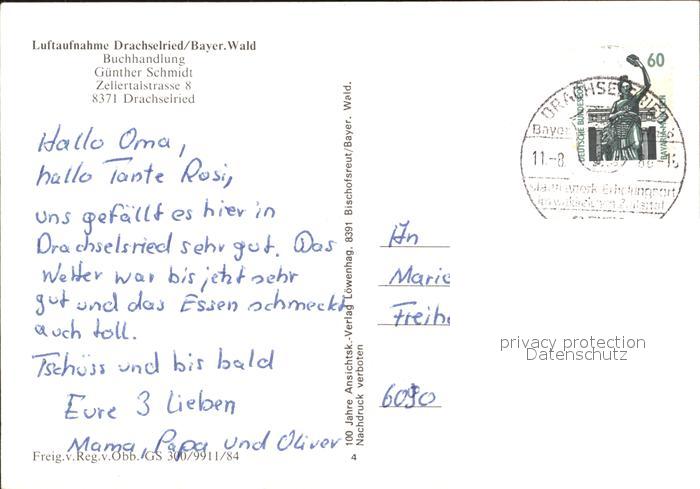 Luftaufnahme Drachselried/Bayer.Wald
Buchhandlung
Günther Schmidt
Zellertalstrasse 8
8371 Drachselried
Hallo Oma,
hallo Tante Rosi,
uns gefällt es hier in
Drachselsried sehr gut. Das
Wetter war bis jetzt sehr
gut und das Essen schmeckt
auch toll.
Tschüss und bis bald
Eure 3 Lieben
Mama, Papa und Oliver
Freig.v.Reg.v.Obb. GS 300/9911/84
100 Jahre Ansichtsk.-Verlag Löwenhag, 8391 Bischofsreut/Bayer. Wald.
Nachdruck verboten
4
60
DEUTSCHE BUNDESPOST
BAVARIA MÜNCHEN
DRACHSELSRIED
Bayer
11.-8.
-16
An
Marie
Freih
6090
privacy protection
Datenschutz